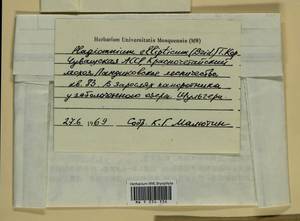 Herbarium Universitatis Mosquensis (MW)
Plagiomnium ellipticum (Brid.) T. Kop.
Чувашская АССР Красночетайский
лесхоз. Ландиковское лесничество
кв. 83. В зарослях папоротника
у заболоченного озера
27.6 1969 Собр. К. Г. Малютин
Herbarium MW, Bryophytes